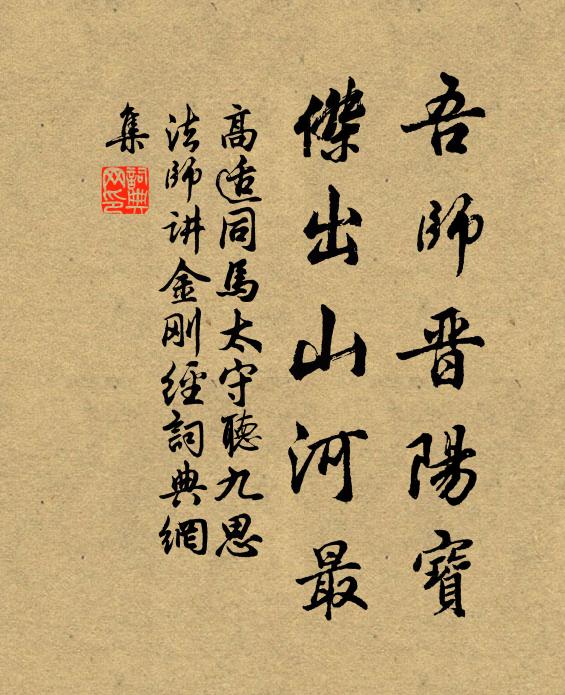 吾師晋陽寶
傑出山河最
高适同馬太守聽九思
法師讲金刚經詞典網
集
詞典
网印